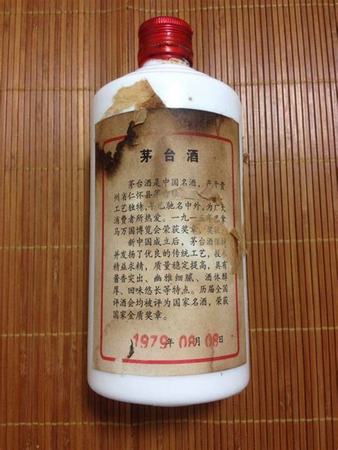 茅台酒
茅台酒是中国名酒，产于贵
州省仁怀县茅
工艺独特，早已驰名中外，为广大
消费者所热爱。一九一五年巴拿
马万国博览会荣获奖章、奖
新中国成立后，茅台酒
并发扬了优良的传统工艺，技术
精益求精，质量稳定提高，具有
酱香突出、幽雅细腻、酒体醇
厚、回味悠长等特点。历届全国
评酒会均被评为国家名酒，荣获
国家金质奖章。
1979年08月08日